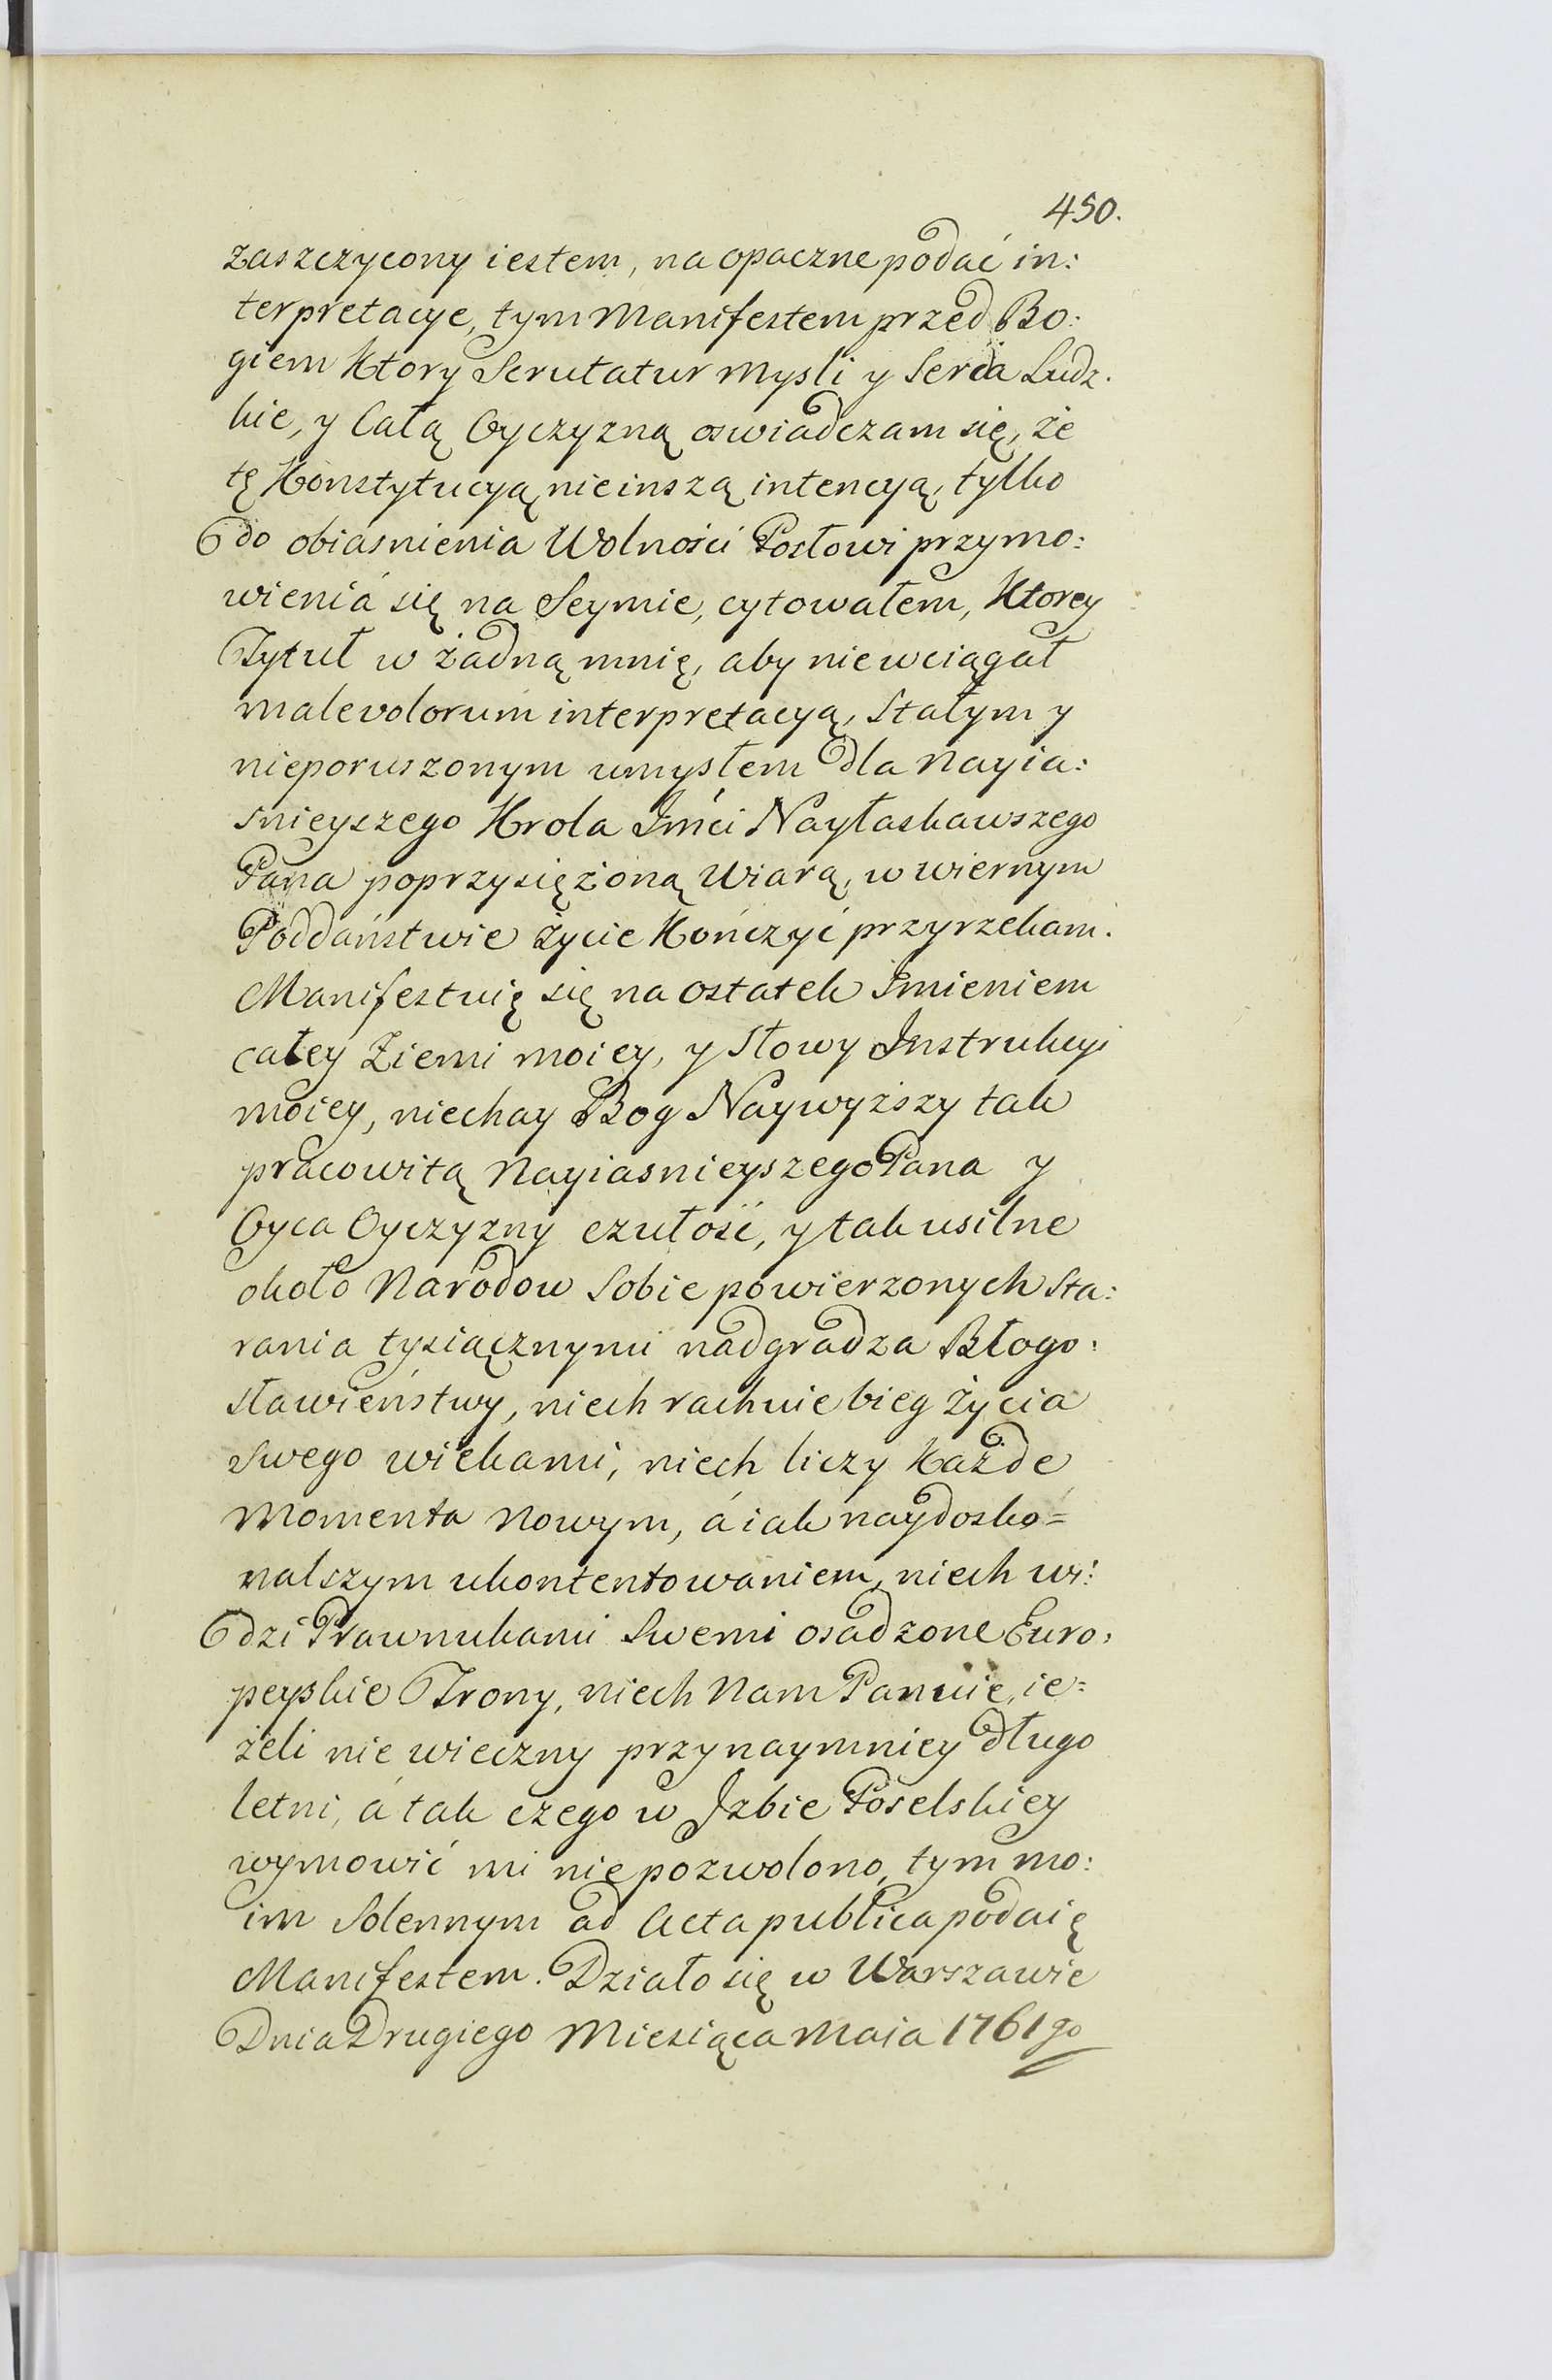 450.
zaszczycony iestem, na opaczne podać in:
terpretacye, tym Manifestem przed Bo:
giem Ktory Scrutatur mysli y Serca Ludz.
kie, y Całą Oyczyzną oswiadczam się, że
tę Konstytucyą nie inszą intencyą, tylko
do obiasnienia Wolności Posłowi przymo:
wieniá się na Seymie, cytowałem, Ktorey
Tytuł w żadną mnię, aby nie wciągał
malevolorum interpretacyą, Stałym y
nieporuszonym umysłem dla Nayia:
snieyszego Krola Jmći Nayłaskawszego
Pana poprzysiężoną Wiarą, w wiernym
Poddaństwie życie Kończyć przyrzekam.
Manifestuię się na ostatek imieniem
całey Ziemi moiey, y Słowy Instrukcyi
moiey, niechay Bog Naywyższy tak
pracowitą Nayiasnieyszego Pana y
Oyca Oyczyzny czułość, y tak usilne
około Narodow Sobie powierzonych sta:
rania tysiącznymi nadgradza Błogo:
sławieństwy, niech rachuie bieg życia
Swego wiekami, niech liczy każde
Momenta Nowym, á iak naydosko=
nalszym ukontentowaniem, niech wi:
dzi Prawnukami Swemi osadzone Euro:
peyskie Trony, niech Nam Panuie, ie=
żeli nie wieczny przynaymniey długo
letni, á tak czego w Jzbie Poselskiey
wymowić mi nie pozwolono, tym mo:
im Solennym ad Acta publica podaię
Manifestem. Działo się w Warszawie
Dnia Drugiego Miesiąca Maia 1761go